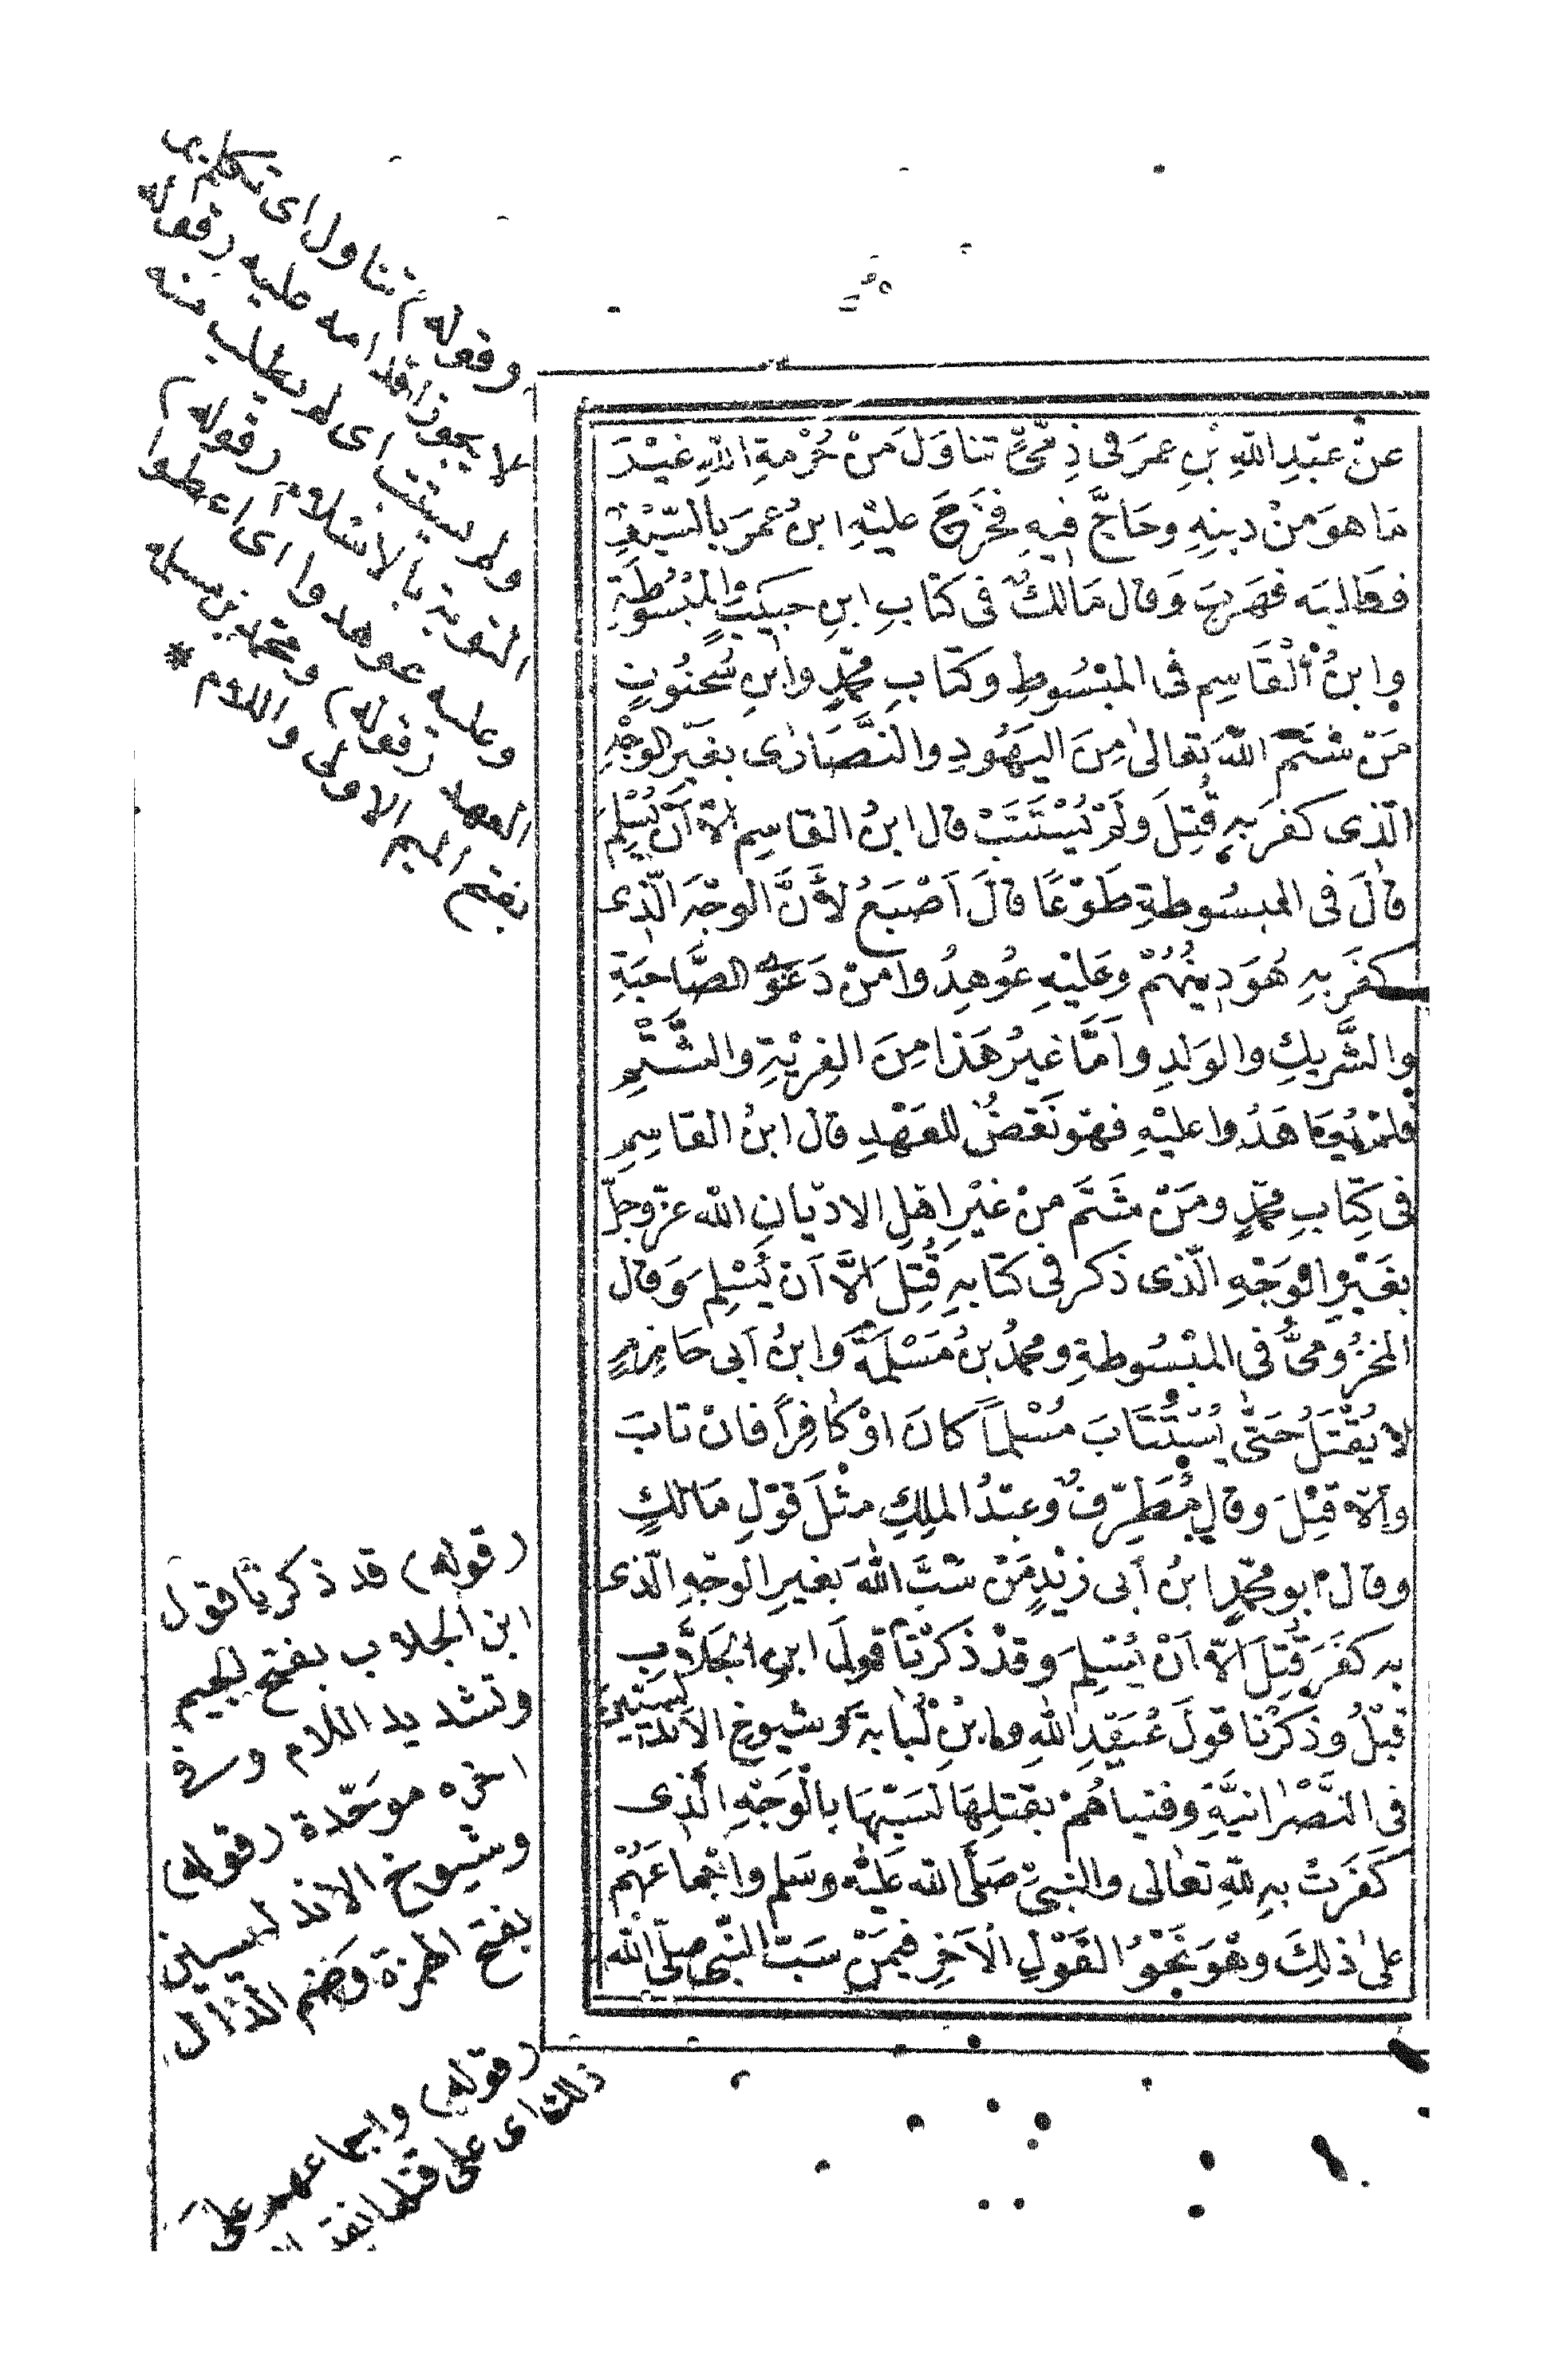 عن عبد الله بن عمر فى ذمّى تناول من حُرمة الله غير
ما هو من دينه وحاجّ فيه فخرج عليه ابن عمر بالسّيف
فطالبه فهرب وقال مالك فى كتاب ابن حبيب والمبسوطة
وابن القاسم فى المبسوط وكتاب محمّد وابن سُحنُون
من شتم الله تعالى من اليهود والنّصارى بغير الوجه
الّذى كفر به قُتل ولم يُستتب قال ابن القاسم الّا أن يُسلم
قال فى المبسوطة طوعًا قال اصبغ لأنّ الوجه الّذى
كفر به هو دينُهُم وعليه عُوهدُوا من دعوى الصّاحبة
والشّريك والولد وأمّا غير هذا من الفرية والشّتم
فلم يُعاهدُوا عليه فهو نقض للعهد قال ابن القاسم
فى كتاب محمّد ومن شتم من غير اهل الاديان الله عزّ وجلّ
بغير الوجه الّذى ذكر فى كتابه قُتل الّا أن يُسلم وقال
المخزُومىّ فى المبسُوطة ومحمّد بن مسلمة وابن أبى حازم
لا يُقتل حتّى يُستتاب مُسلماً كان او كافراً فان تاب
وإلّا قتل وقال مُطرّف وعبدُ الملك مثل قول مالك
وقال ابو محمّد ابن أبى زيد من سبّ الله بغير الوجه الّذى
به كفر قُتل الّا أن يُسلم وقد ذكرنا قول ابن الجلّاب
قبلُ وذكرنا قول عُبيد الله وابن لُبابة وشيوخ الاندلسيّين
فى النّصرانيّة وفتياهُم بقتلها لسبّها بالوجه الّذى
كفرت به لله تعالى والنّبىّ صلّى الله عليه وسلم واجماعهُم
على ذلك وهو نحو القول الآخر فيمن سبّ النّبى صلّى الله
(قوله) تناول اى تكلم
لا يجوز اقدامه عليه (قوله
ولم يستتب اى لم يطلب منه
التوبة بالاسلام (قوله)
وعليه عوهدوا اى
العهد (قوله) ومحمد بن مسلمة
بفتح الميم الاولى واللام *
(قوله) قد ذكرنا قول
ابن الجلاب بفتح الجيم
وتشديد اللام وفى
اخره موحّدة (قوله)
وشيوخ الاندلسيين
بفتح الهمزة وضم الدال
(قوله) واجماعهم على
ذلك اى على قتلها